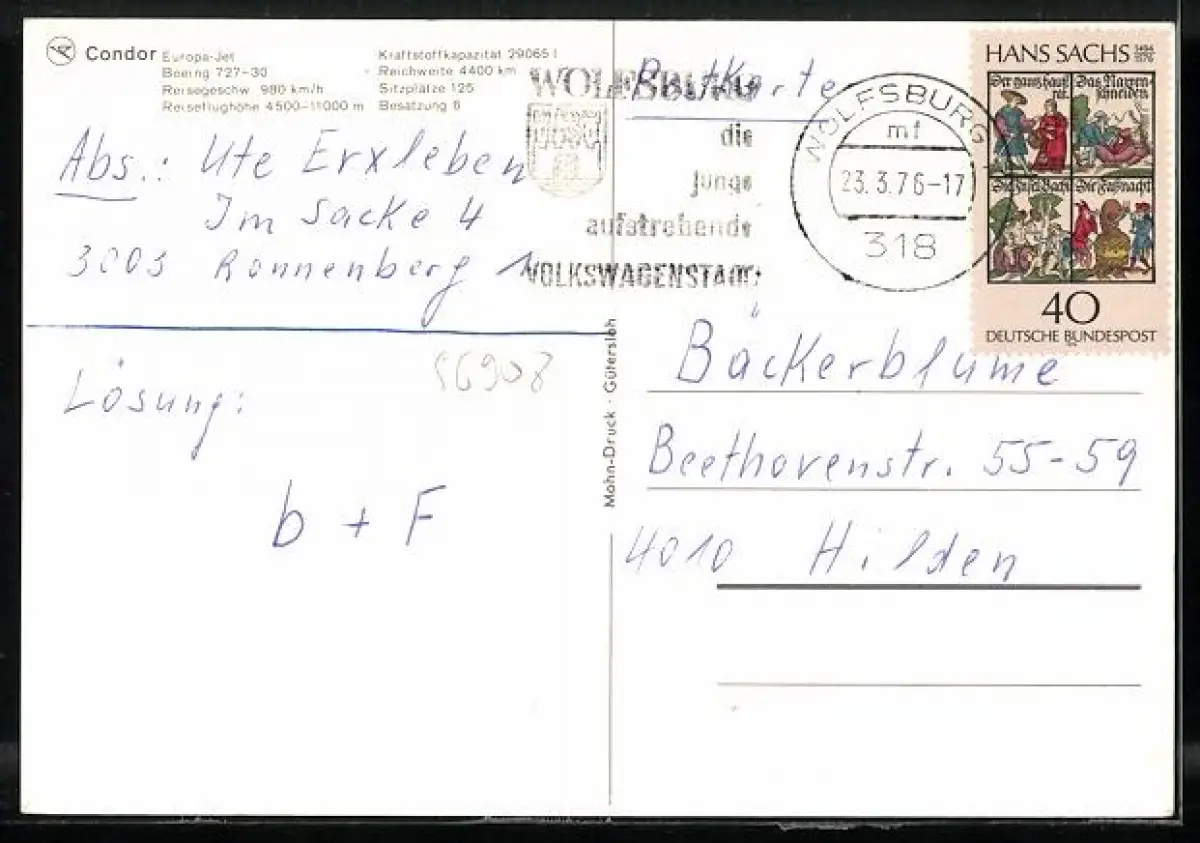 Condor Europa-Jet
Boeing 727-30
Reisegeschw. 980 km/h
Reiseflughöhe 4500-11000 m
Kraftstoffkapazität 29065 l
Reichweite 4400 km
Sitzplätze 125
Besatzung 6
Abs.: Ute Erxleben
Im Sacke 4
3003 Ronnenberg 1
Lösung:
b + F
Mohn-Druck · Gütersloh
WOLFSBURG
die
junge
aufstrebende
VOLKSWAGENSTADT
Postkarte
WOLFSBURG
mf
23.3.76-17
318
HANS SACHS 1494 1576
Der ganz hauß rat.
Das Narren schneiden.
Die Faßnacht
40
DEUTSCHE BUNDESPOST
Bäckerblume
Beethovenstr. 55-59
4010 Hilden